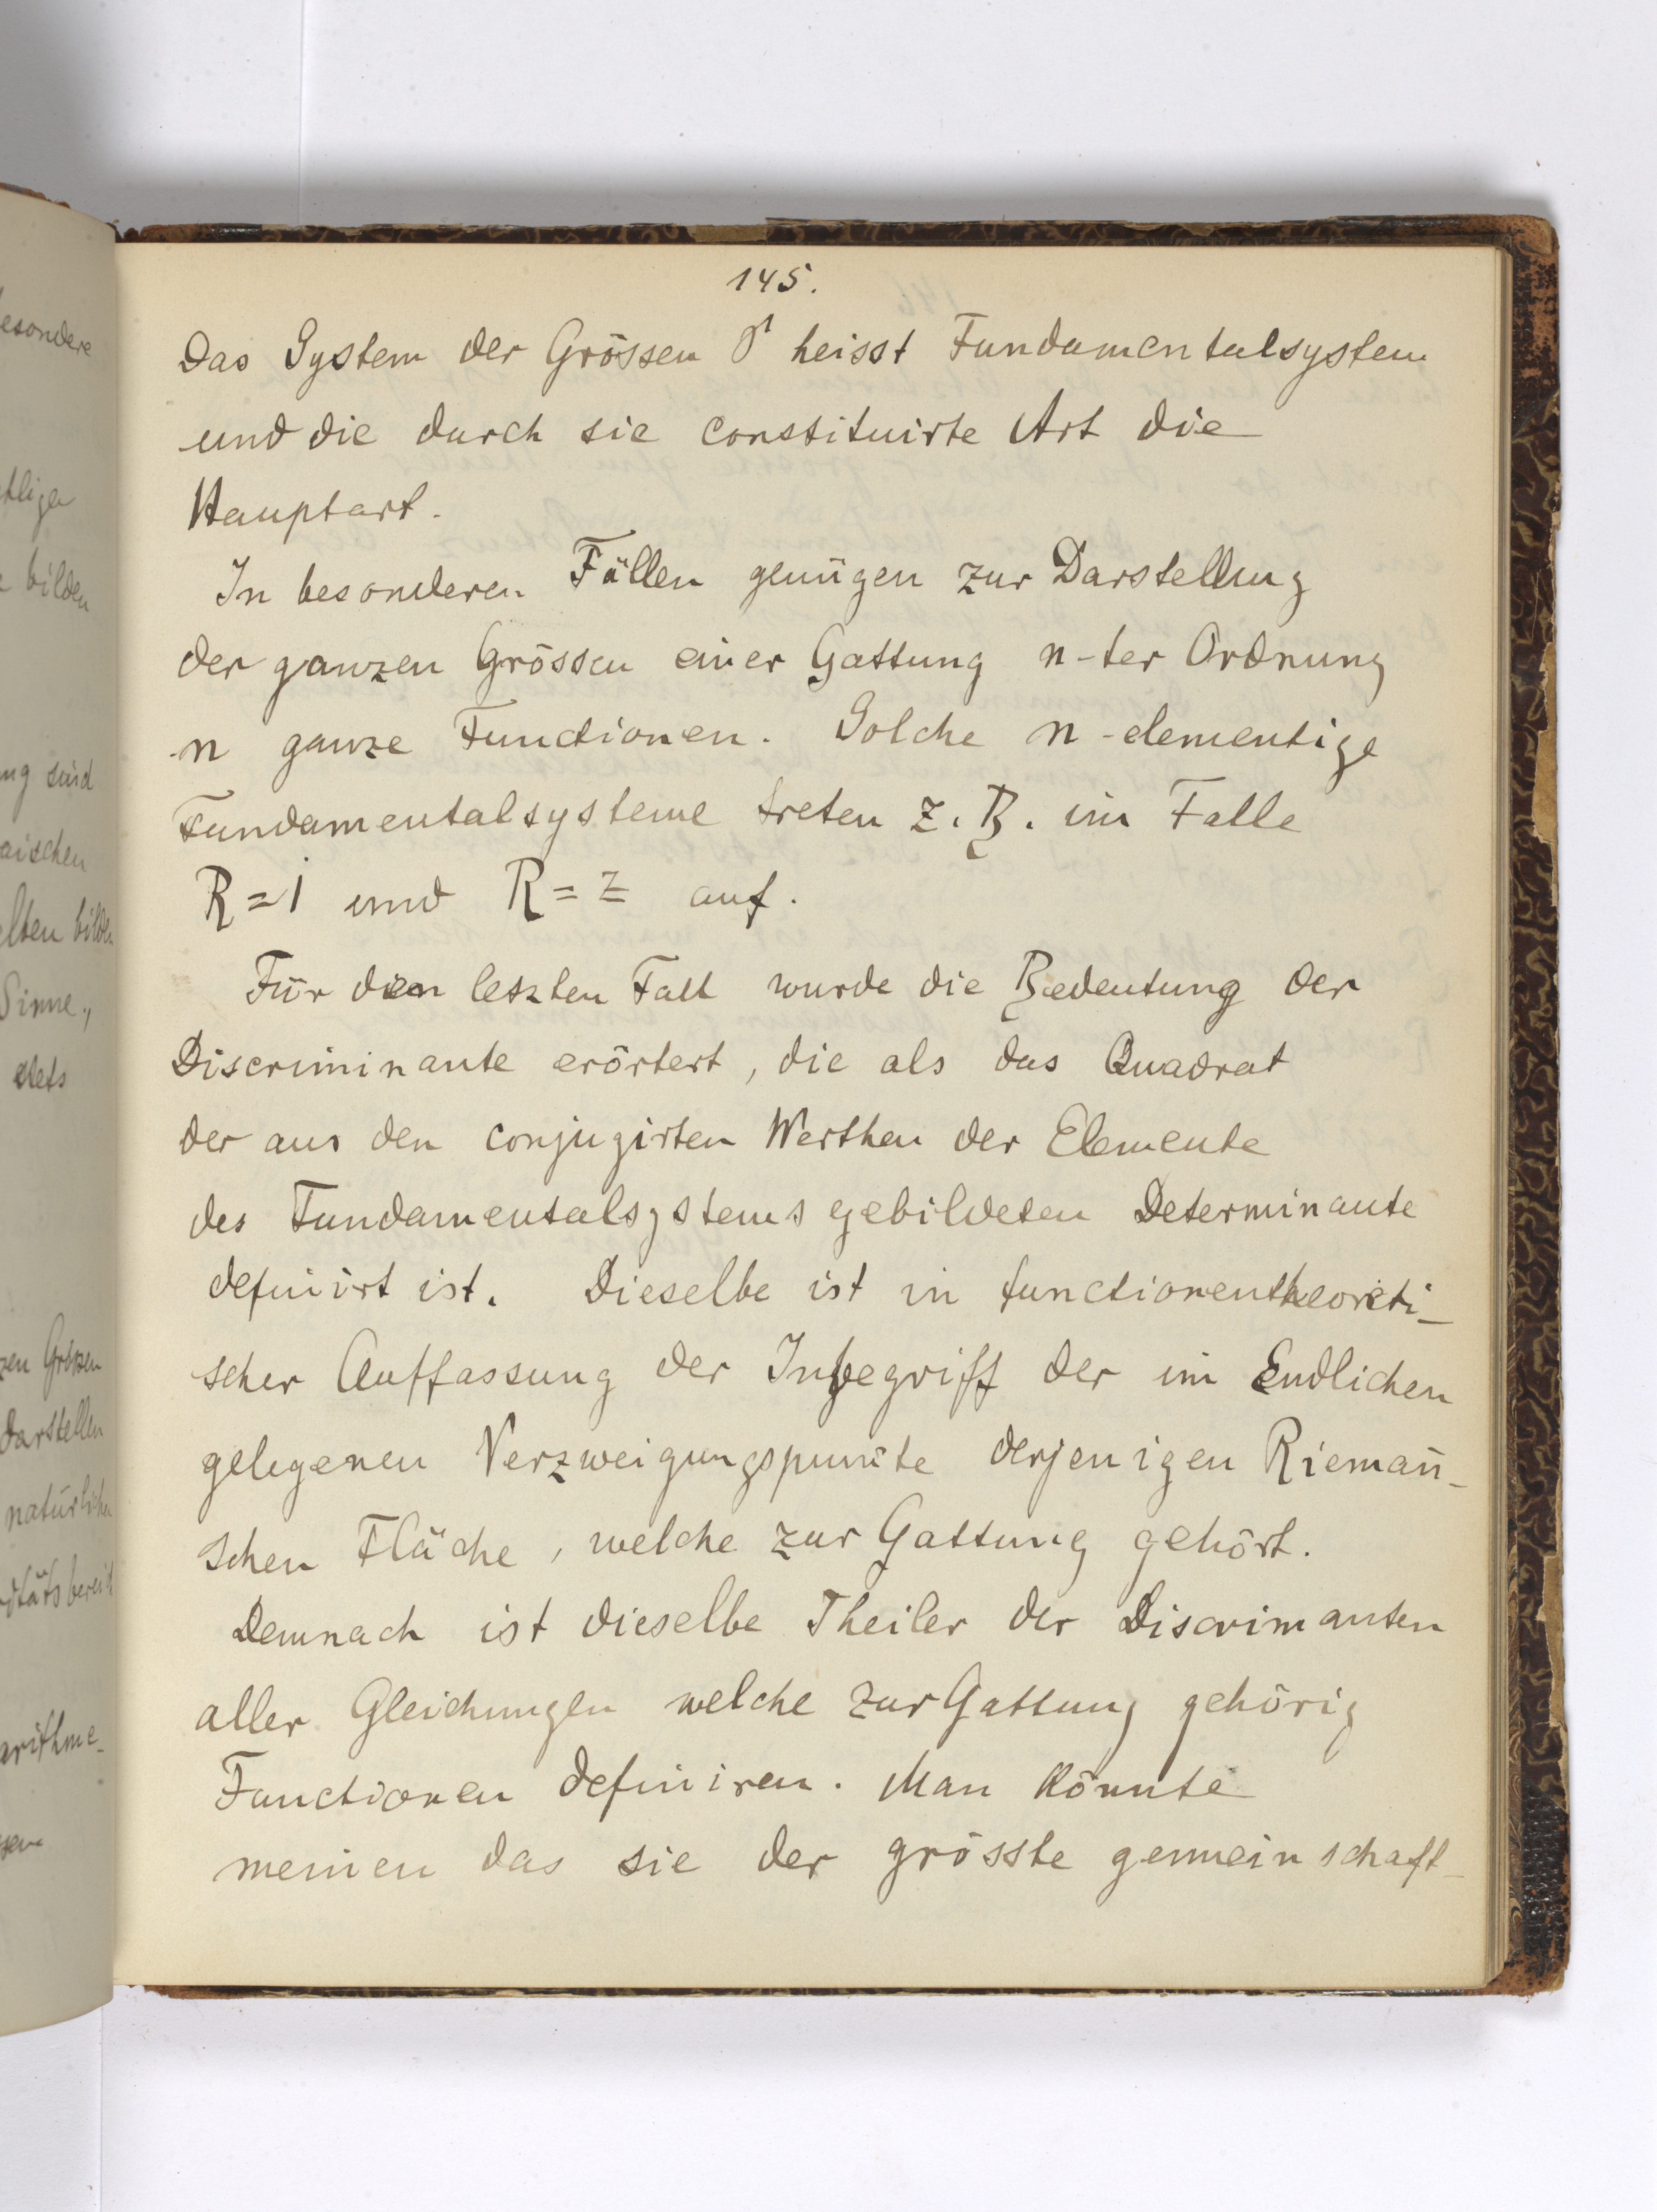 145.
Das System der Grössen heisst Fundamentalsystem
und die durch sie constituirte Art die
Hauptart.
In besonderen Fällen genügen zur Darstellung
der ganzen Grössen einer Gattung n-ter Ordnung
n ganze Functionen. Solche n-elementige
Fundamentalsysteme treten z. B. im Falle
R=1 und R=z auf.
Für den letzten Fall wurde die Bedeutung der
Discriminante erörtert, die als das Quadrat
der aus den conjugirten Werthen der Elemente
des Fundamentalsystems gebildeten Determinante
definirt ist. Dieselbe ist in functionentheoreti-
scher Auffassung der Inbegriff der im Endlichen
gelegenen Verzweigungspunkte derjenigen Riemañ-
schen Fläche, welche zur Gattung gehört.
Demnach ist dieselbe Theiler der Discrimanten
aller Gleichungen welche zur Gattung gehörig
Functionen definiren. Man könnte
meinen das sie der grösste gemeinschaft-
esondere
bilden
ng sind
aischen
elten bilden
Sinne.,
stets
zen Grössen
darstellen
natürlichen
arithme-